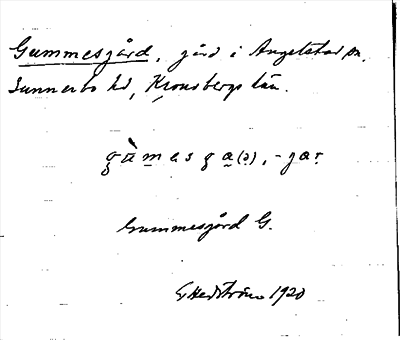 Gummesgård, gård i Angelstad sn,
Sunnerbo hd, Kronobergs län.
gùmesga(r), -gar
Gummesgård G.
G Hedström 1920